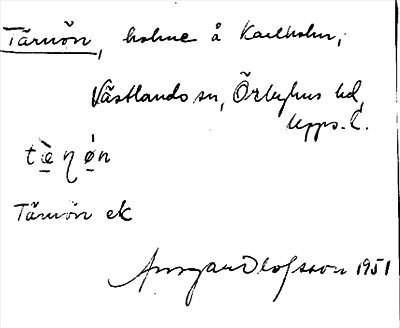 Tärnön, holme å Karlholm,
Västlands sn, Örbyhus hd,
Upps. l.
tæ̀ṇǿn
Tärnön ek
Ansgar Olofsson 1951